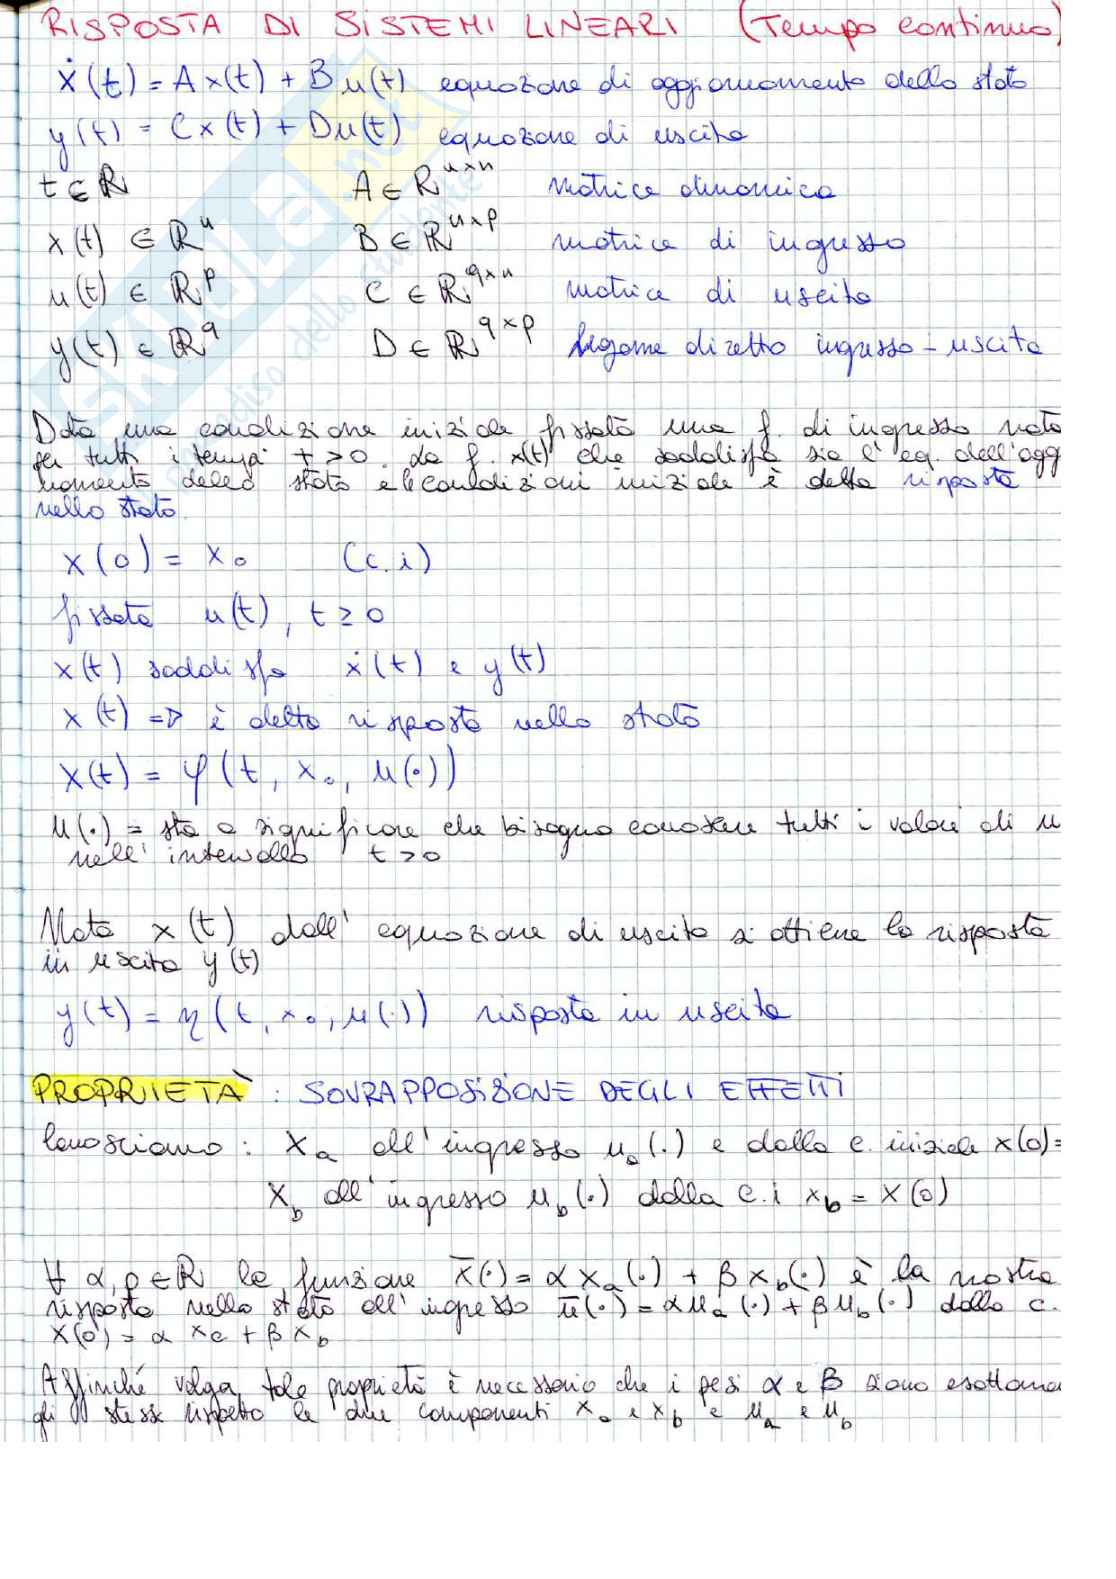 RISPOSTA DI SISTEMI LINEARI (Tempo continuo)
ẋ(t) = Ax(t) + Bu(t) equazione di aggiornamento dello stato
y(t) = Cx(t) + Du(t) equazione di uscita
t ∈ ℝ A ∈ ℝⁿˣⁿ matrice dinamica
x(t) ∈ ℝⁿ B ∈ ℝⁿˣᵖ matrice di ingresso
u(t) ∈ ℝᵖ C ∈ ℝ^{q×n} matrice di uscita
y(t) ∈ ℝ^q D ∈ ℝ^{q×p} legame diretto ingresso-uscita
Data una condizione iniziale fissata una f. di ingresso nota
per tutti i tempi t>0. La f. x(t) che soddisfa sia l'eq. dell'agg
namento dello stato e le condizioni iniziale è detta risposta
nello stato.
x(0) = x₀ (c.i)
fissata u(t), t ≥ 0
x(t) soddisfa ẋ(t) e y(t)
x(t) => è detta risposta nello stato
x(t) = φ(t, x₀, u(·))
u(·) = sta a significare che bisogna conoscere tutti i valori di u
nell'intervallo t>0
Nota x(t) dall'equazione di uscita si ottiene la risposta
in uscita y(t)
y(t) = η(t, x₀, u(·)) risposta in uscita
PROPRIETÀ : SOVRAPPOSIZIONE DEGLI EFFETTI
Conosciamo: xₐ all'ingresso uₐ(·) e dalla c. iniziale x(0)=
x_b all'ingresso u_b(·) dalla c.i x_b = x(0)
∀ α, β ∈ ℝ la funzione x̄(·) = αxₐ(·) + βx_b(·) è la nostra
risposta nello stato all'ingresso ū(·) = αuₐ(·) + βu_b(·) dalla c.
x(0) = α xₐ + β x_b
Affinché valga tale proprietà è necessario che i pesi α e β siano esattame
gli stessi rispetto le due componenti xₐ e x_b e uₐ e u_b
SKUOLA.net
dello studente